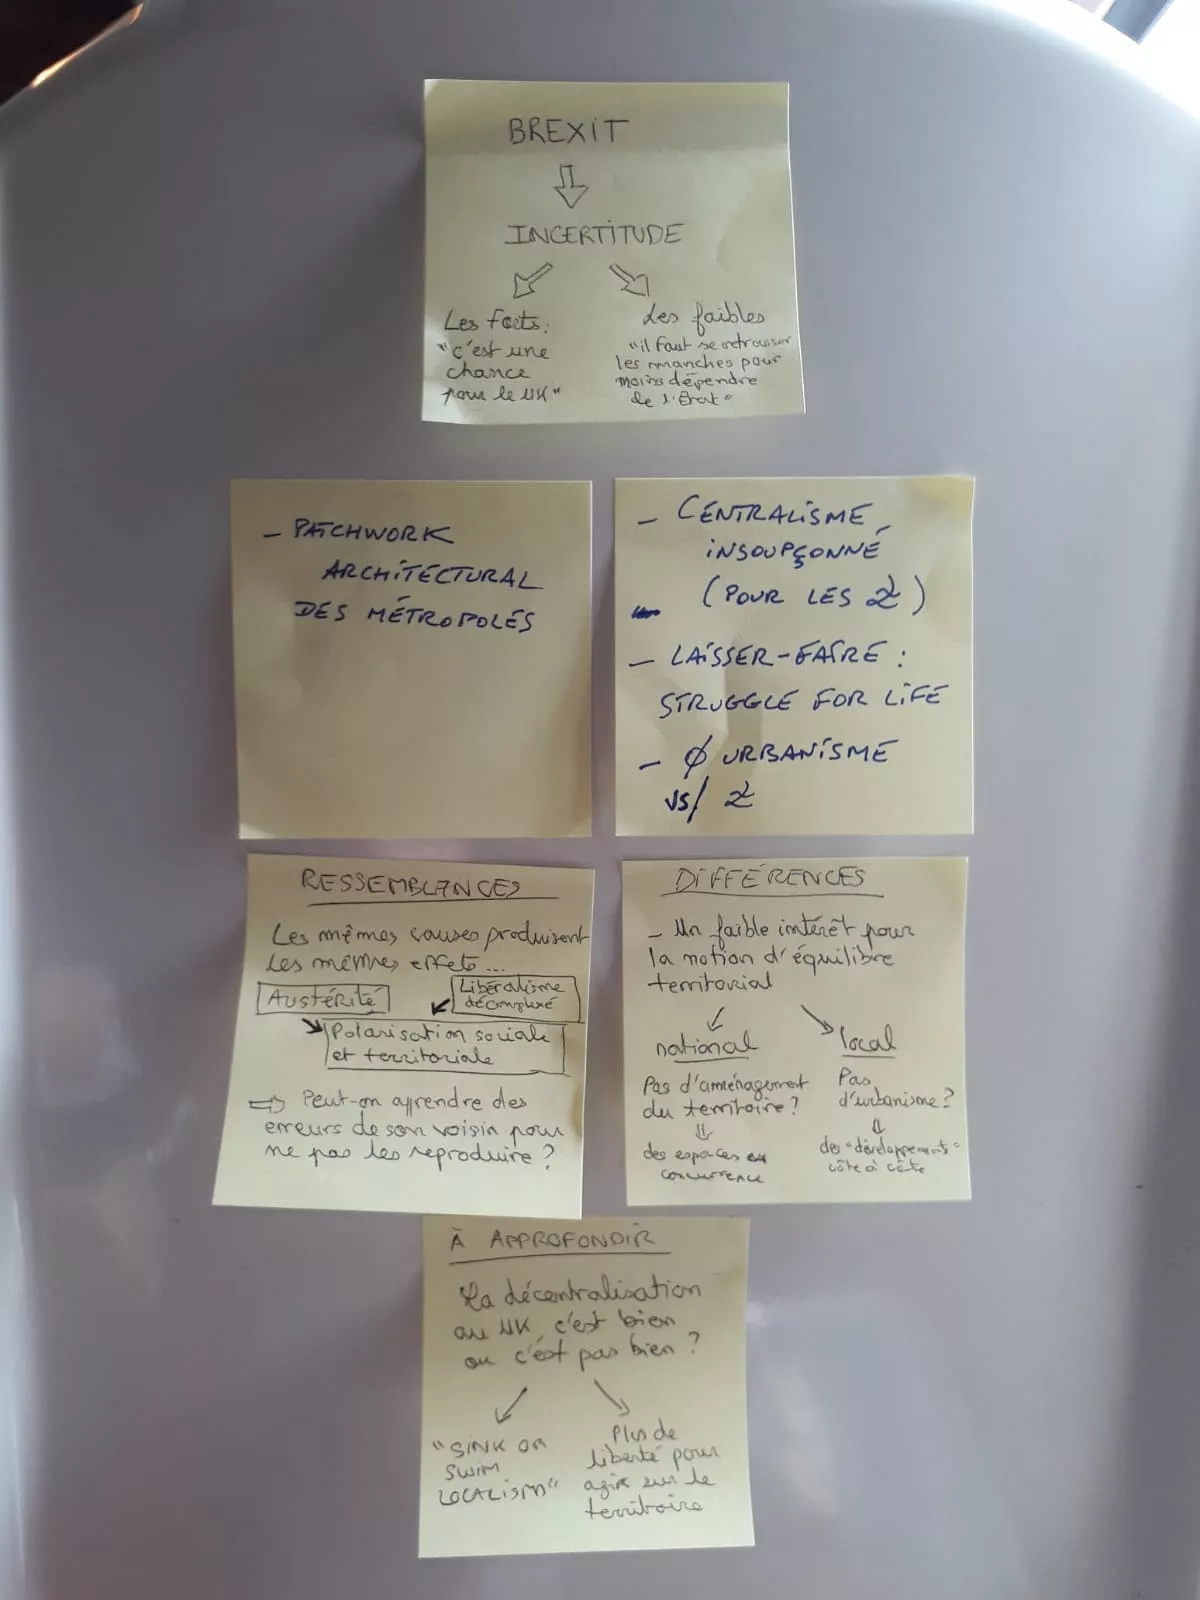 BREXIT
INCERTITUDE
Les forts:
"c'est une
chance
pour le UK"
Les faibles
"il faut se retrousser
les manches pour
moins dépendre
de l'État"
- PATCHWORK
ARCHITECTURAL
DES MÉTROPOLES
- CENTRALISME
INSOUPÇONNÉ
(POUR LES )
- LAISSER-FAIRE :
STRUGGLE FOR LIFE
- Ø URBANISME
vs/
RESSEMBLANCES
Les mêmes causes produisent
les mêmes effets...
Austérité
Libéralisme
décomplexé
Polarisation sociale
et territoriale
⇒ Peut-on apprendre des
erreurs de son voisin pour
ne pas les reproduire ?
DIFFÉRENCES
- Un faible intérêt pour
la notion d'équilibre
territorial
national
Pas d'aménagement
du territoire ?
des espaces en
concurrence
local
Pas
d'urbanisme ?
des "développements"
côte à côte
À APPROFONDIR
La décentralisation
au UK, c'est bien
ou c'est pas bien ?
"SINK OR
SWIM
LOCALISM"
Plus de
liberté pour
agir sur le
territoire